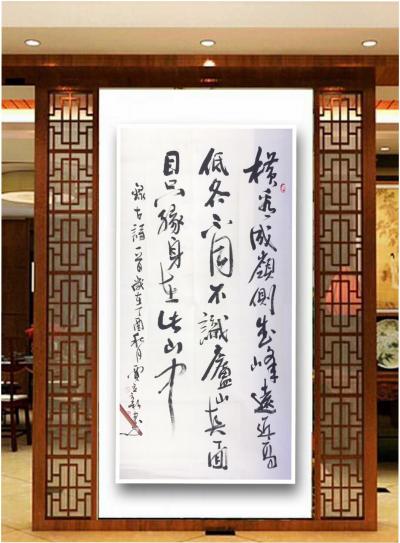 横看成嶺側成峰遠近高
低各不同不識廬山真面
目只緣身在此山中
錄古詩一首歲在丁酉秋月